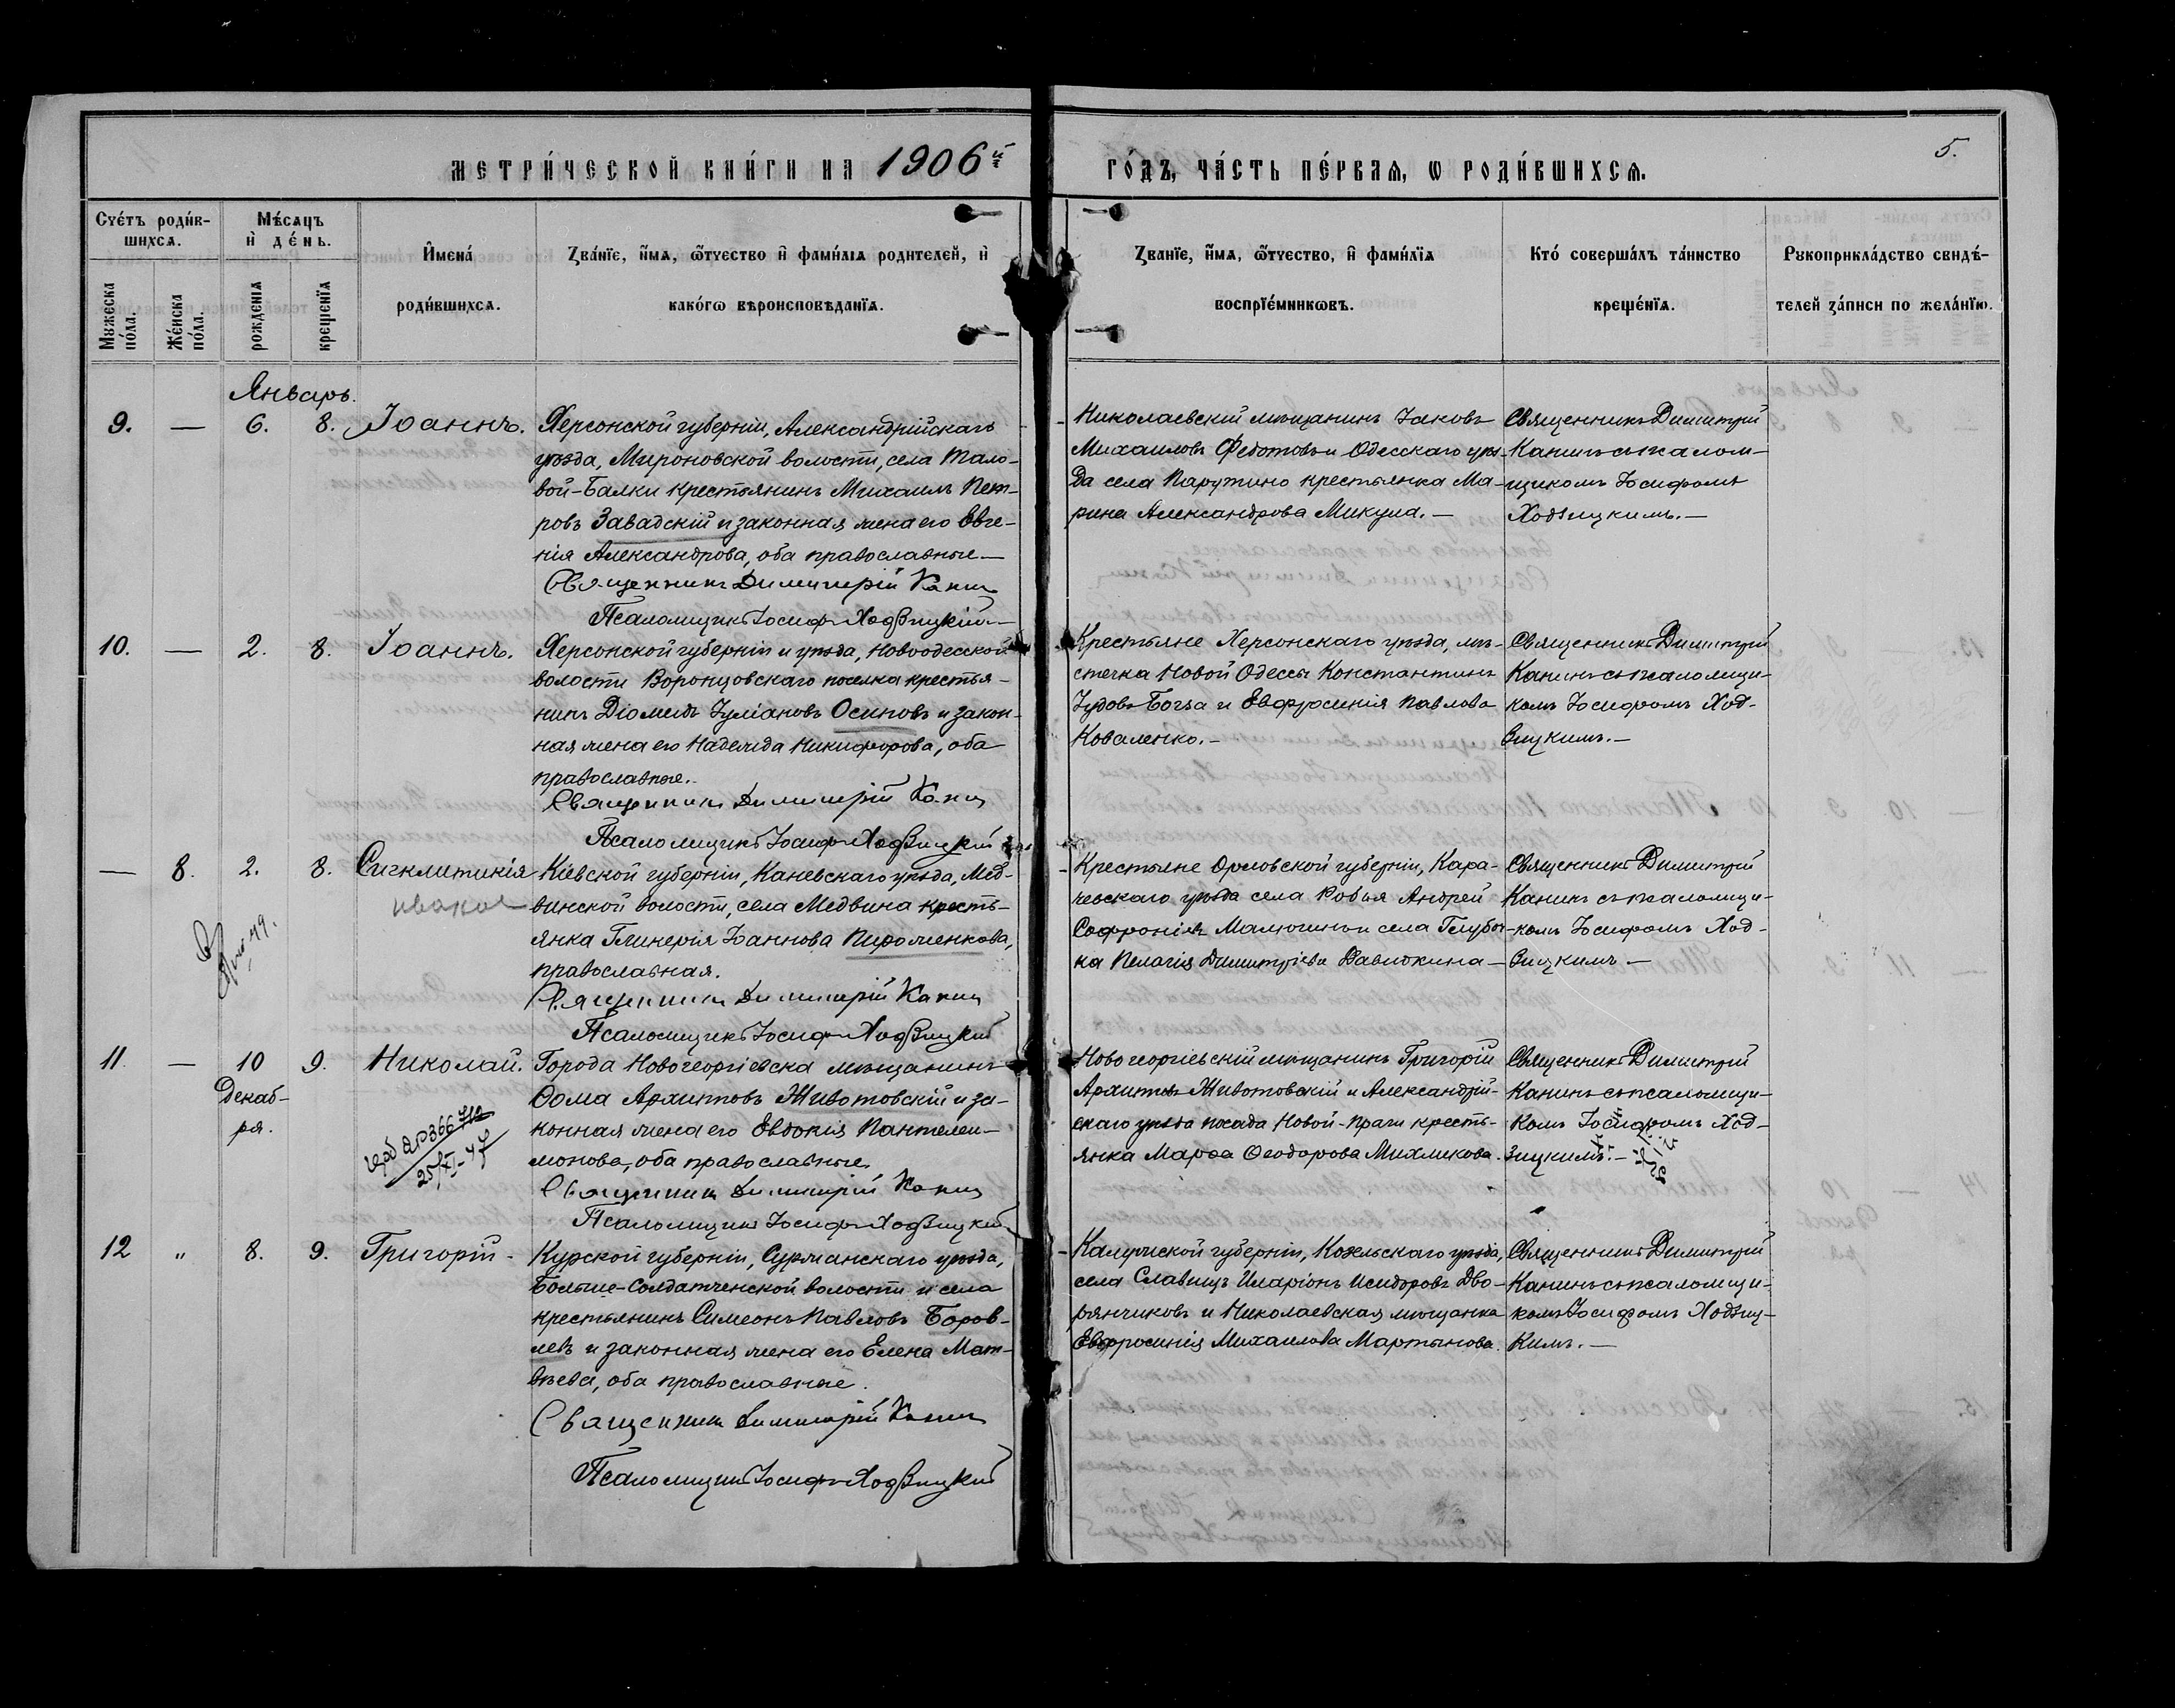 МЕТРИ́ЧЕСКОЙ КНИ́ГИ НА 1906й
ГО́ДЪ, ЧА́СТЬ ПЕ́РВАѦ, Ѡ РОДИ́ВШИХСѦ.
5.
Счётъ роди́в-
шихсѧ.
Му́жеска по́ла.
Же́нска по́ла.
Мѣ́сѧцъ
и҆ де́нь.
рожде́нїѧ
креще́нїѧ
И҆мена́
роди́вшихсѧ.
Зва́нїе, и҆́мѧ, ѻ҆́тчество и҆ фами́лїѧ роди́телей, и҆
како́гѡ вѣроисповѣ́данїѧ.
Зва́нїе, и҆́мѧ, ѻ҆́тчество, и҆ фами́лїѧ
воспрїе́мникѡвъ.
Кто́ соверша́лъ та́инство
креще́нїѧ.
Рукоприкла́дство свидѣ́-
телей за́писи по жела́нїю.
Январь.
9. — 6. 8. Іоаннъ.
Херсонской губерніи, Александрійскаго
уѣзда, Мироновской волости, села Тало-
вой-Балки крестьянинъ Михаилъ Пет-
ровъ Завадскій и законная жена его Евге-
нія Александрова, оба православные —
Священникъ Димитрій Канин
Псаломщикъ Іосифъ Ходзицкій
Николаевскій мѣщанинъ Іаковъ
Михаиловъ Федотовъ и Одесскаго уѣз-
да села Парутино крестьянка Ма-
рина Александрова Микула. —
Священникъ Димитрій
Канинъ съ псалом-
щикомъ Іосифомъ
Ходзицкимъ. —
10. — 2. 8. Іоаннъ.
Херсонской губерніи и уѣзда, Новоодесской
волости Воронцовскаго поселка крестья-
нинъ Діомидъ Іуліановъ Осиповъ и закон-
ная жена его Надежда Никифорова, оба
православные.
Священникъ Димитрій Канин
Псаломщикъ Іосифъ Ходзицкій
Крестьяне Херсонскаго уѣзда, мѣ-
стечка Новой Одессы Константинъ
Іудовъ Богза и Евфросинія Павлова
Коваленко. —
Священникъ Димитрій
Канинъ съ псаломщи-
комъ Іосифомъ Ход-
зицкимъ. —
— 8. 2. 8. Сигклитикія
Кіевской губерніи, Каневскаго уѣзда, Мед-
винской волости, села Медвина кресть-
янка Гликерія Іоаннова Пироженкова,
православная.
Священникъ Димитрій Канин
Псаломщикъ Іосифъ Ходзицкій
Крестьяне Орловской губерніи, Кара-
чевскаго уѣзда села Рорья Андрей
Софроніевъ Малютинъ и села Голубо-
ка Пелагія Димитріева Давыдкина —
Священникъ Димитрій
Канинъ съ псаломщи-
комъ Іосифомъ Ход-
зицкимъ. —
11. — 10 9. Николай.
Декаб-
ря.
25/XI-47
Города Новогеоргіевска мѣщанинъ
Ѳома Архиповъ Животовскій и за-
конная жена его Евдокія Пантелеи-
монова, оба православные.
Священникъ Димитрій Канин
Псаломщикъ Іосифъ Ходзицкій
Новогеоргіевскій мѣщанинъ Григорій
Архиповъ Животовскій и Александрій-
скаго уѣзда посада Новой-Праги кресть-
янка Марѳа Ѳеодорова Михликова.
Священникъ Димитрій
Канинъ съ псаломщи-
комъ Іосифомъ Ход-
зицкимъ. —
12 „ 8. 9. Григорій -
Курской губерніи, Суджанскаго уѣзда,
Больше-Солдатченской волости и села
крестьянинъ Симеонъ Павловъ Боров-
левъ и законная жена его Елена Мат-
вѣева, оба православные.
Священникъ Димитрій Канин
Псаломщикъ Іосифъ Ходзицкій
Калужской губерніи, Козельскаго уѣзда,
села Славищъ Иларіонъ Исидоровъ Дво-
рянчиковъ и Николаевская мѣщанка
Евфросинія Михаилова Мартынова.
Священникъ Димитрій
Канинъ съ псаломщи-
комъ Іосифомъ Ходзиц-
кимъ. —